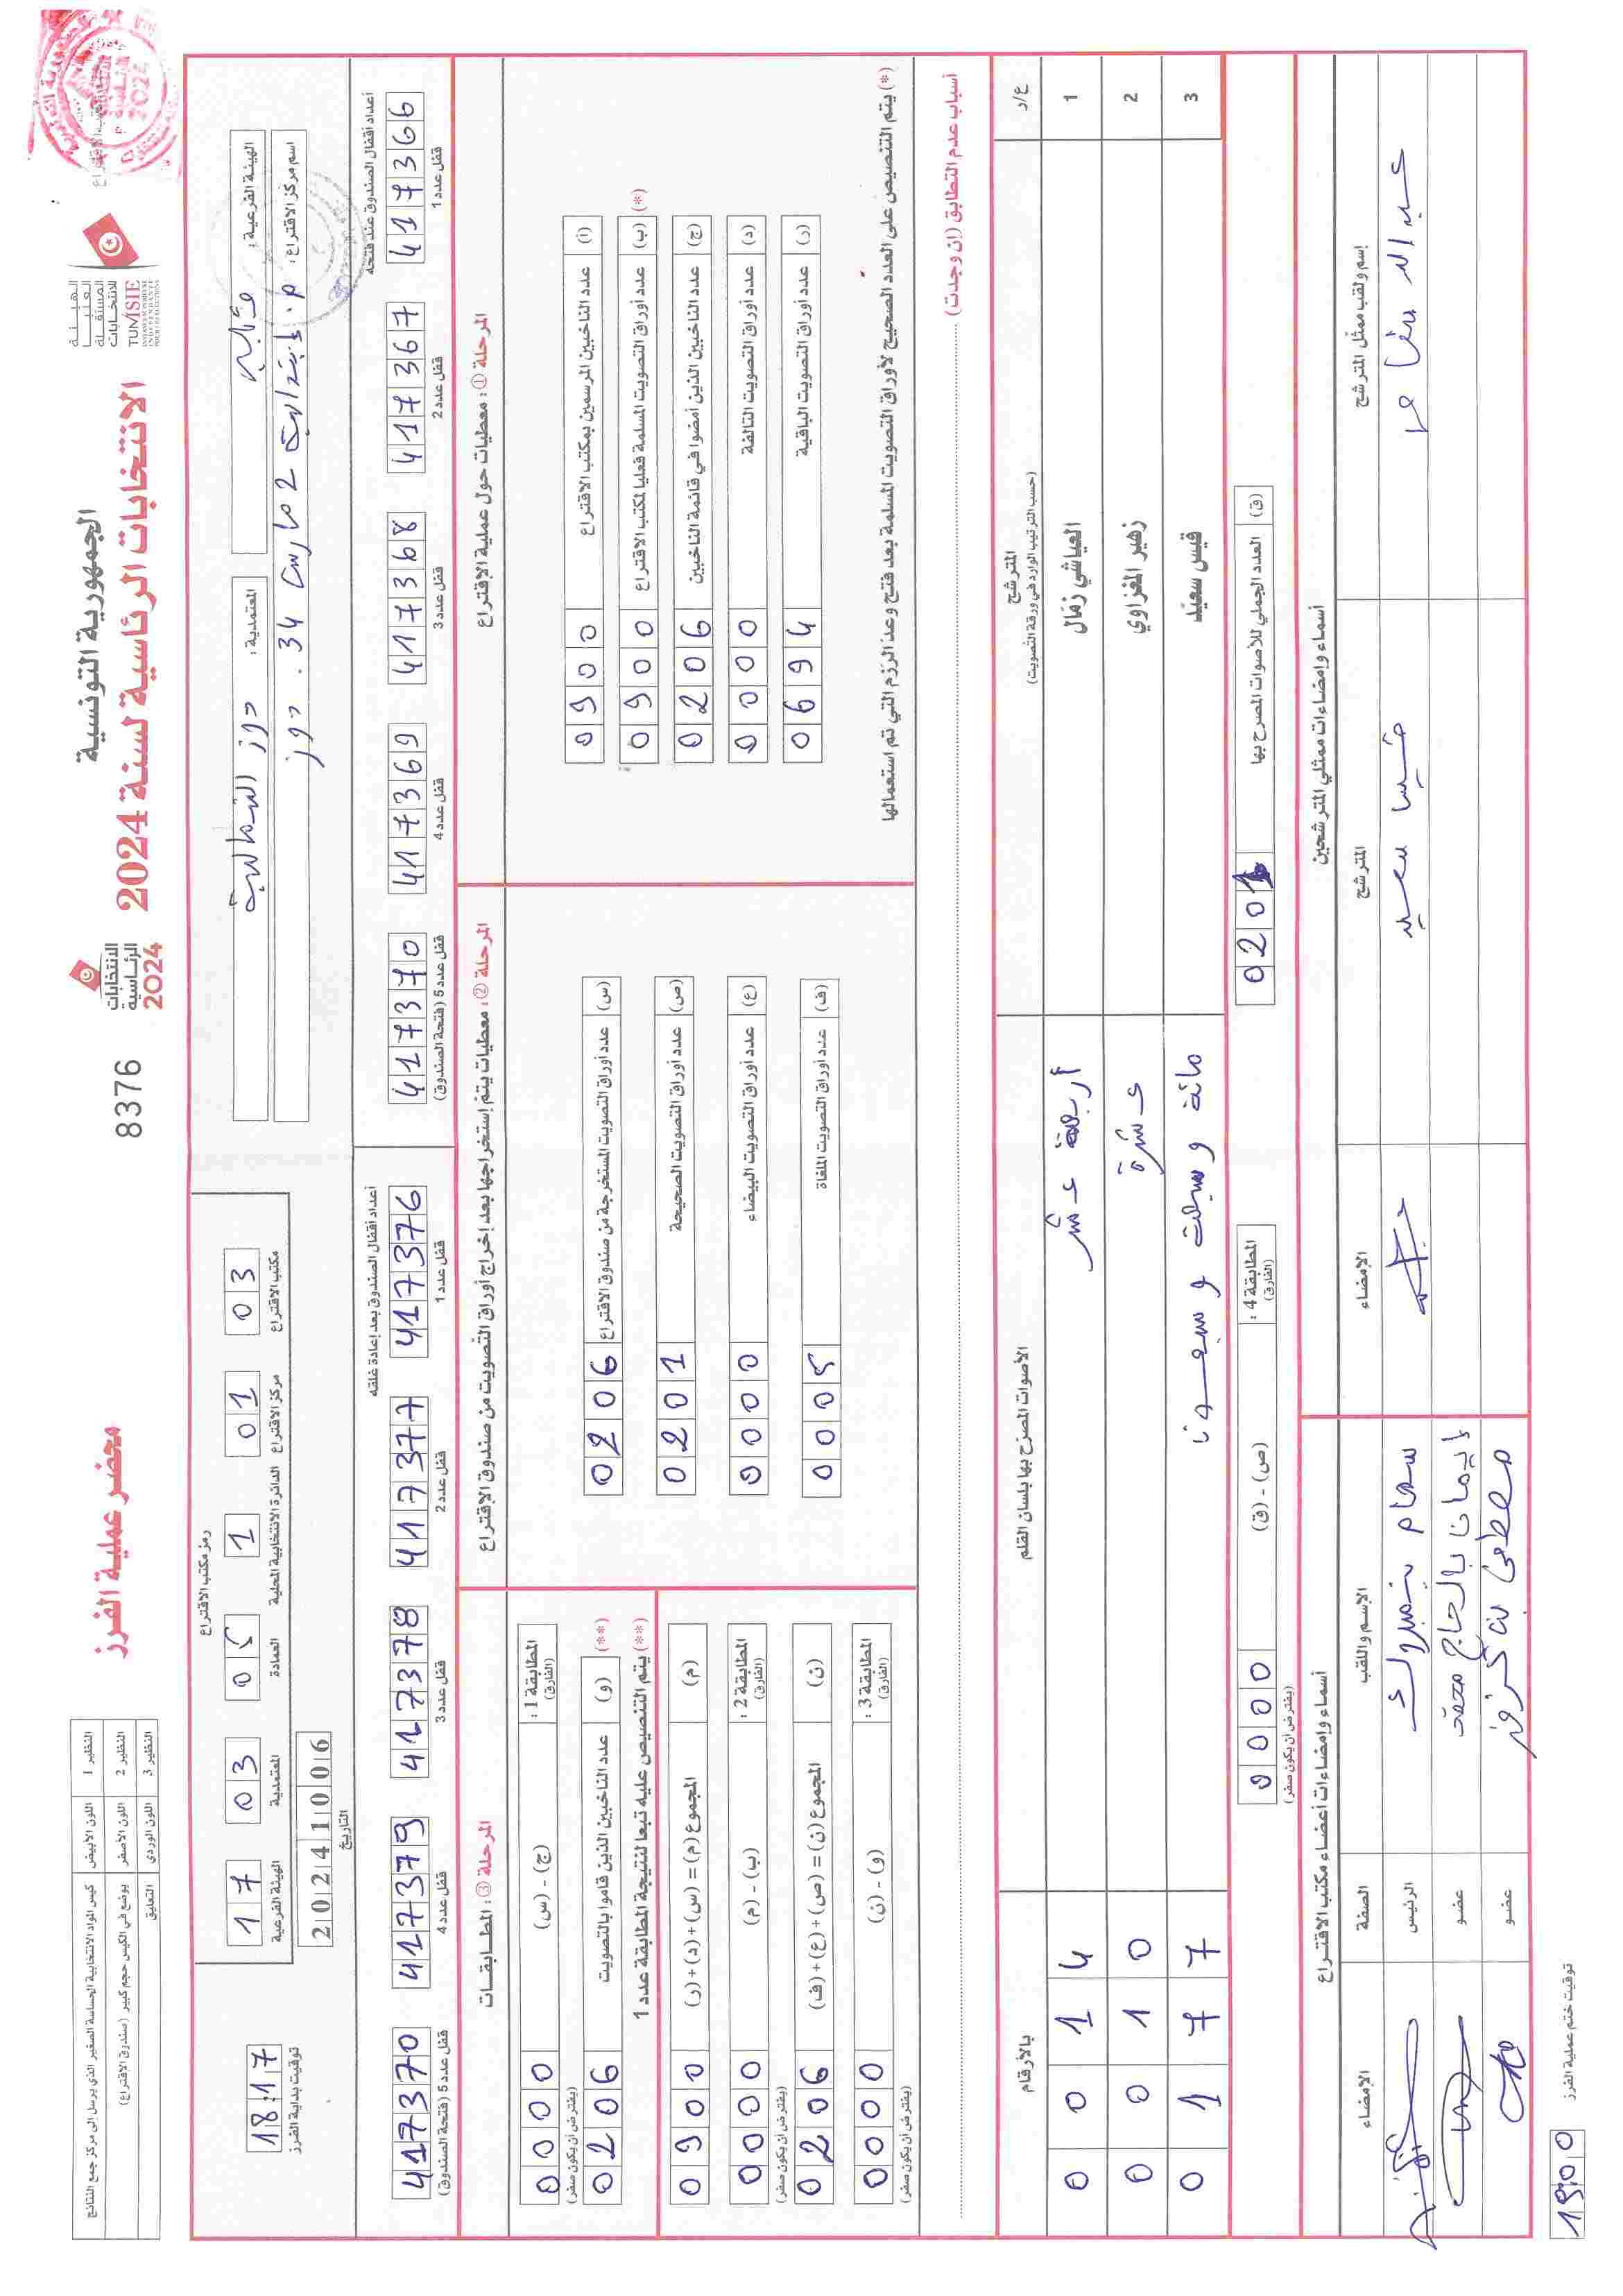 الجمهورية التونسية
الانتخابات الرئاسية لسنة 2024
محضر عملية الفرز
الهيئة
العليا
المستقلة
للانتخابات
TUNISIE
الانتخابات
الرئاسية
2024
8376
النظير 1 اللون الأبيض كيس المواد الانتخابية الحساسة الصغير الذي يرسل إلى مركز جمع النتائج
النظير 2 اللون الأصفر يوضع في الكيس حجم كبير (صندوق الاقتراع)
النظير 3 اللون الوردي التعليق
الهيئة الفرعية: قبلي
المعتمدية: دوز الشمالية
اسم مركز الاقتراع: م. إبتدائية 2 مارس 34. دوز
رمز مكتب الاقتراع
03 مكتب الاقتراع
01 مركز الاقتراع
1 الدائرة الانتخابية المحلية
05 العمادة
03 المعتمدية
17 الهيئة الفرعية
20241006
التاريخ
18:17
توقيت بداية الفرز
أعداد أقفال الصندوق عند فتحه
417366 قفل عدد 1
417367 قفل عدد 2
417368 قفل عدد 3
417369 قفل عدد 4
417370 قفل عدد 5 (فتحة الصندوق)
أعداد أقفال الصندوق بعد إعادة غلقه
417376 قفل عدد 1
417377 قفل عدد 2
417378 قفل عدد 3
417379 قفل عدد 4
417370 قفل عدد 5 (فتحة الصندوق)
المرحلة ①: معطيات حول عملية الاقتراع
(أ) عدد الناخبين المرسمين بمكتب الاقتراع 0900
(ب) عدد أوراق التصويت المسلمة فعليا لمكتب الاقتراع 0900 (*)
(ج) عدد الناخبين الذين أمضوا في قائمة الناخبين 0206
(د) عدد أوراق التصويت التالفة 0000
(ر) عدد أوراق التصويت الباقية 0694
(*) يتم التنصيص على العدد الصحيح لأوراق التصويت المسلمة بعد فتح وعد الرزم التي تم استعمالها
المرحلة ②: معطيات يتم إستخراجها بعد إخراج أوراق التصويت من صندوق الاقتراع
(س) عدد أوراق التصويت المستخرجة من صندوق الاقتراع 0206
(ص) عدد أوراق التصويت الصحيحة 0201
(ع) عدد أوراق التصويت البيضاء 0000
(ف) عدد أوراق التصويت الملغاة 0005
المرحلة ③: المطابقات
المطابقة 1: (الفارق) (ج) - (س) 0000
(يفترض أن يكون صفر)
(**) (و) عدد الناخبين الذين قاموا بالتصويت 0206
(**) يتم التنصيص عليه تبعا لنتيجة المطابقة عدد 1
(م) المجموع (م) = (س) + (د) + (ر) 0900
المطابقة 2: (الفارق) (ب) - (م) 0000
(يفترض أن يكون صفر)
(ن) المجموع (ن) = (ص) + (ع) + (ف) 0206
المطابقة 3: (الفارق) (و) - (ن) 0000
(يفترض أن يكون صفر)
أسباب عدم التطابق (إن وجدت)
ع/ر المترشح (حسب الترتيب الوارد في ورقة التصويت) الأصوات المصرح بها بلسان القلم بالأرقام
1 العياشي زمّال أربعة عشر 0014
2 زهير المغزاوي عشرة 0010
3 قيس سعيّد مائة و سبعة و سبعون 0177
(ق) العدد الجملي للأصوات المصرح بها 0201
المطابقة 4: (الفارق) (ص) - (ق) 0000
(يفترض أن يكون صفر)
أسماء وإمضاءات ممثلي المترشحين
إسم ولقب ممثل المترشح المترشح الإمضاء
قيس سعيد
أسماء وإمضاءات أعضاء مكتب الاقتراع
الإسم واللقب الصفة الإمضاء
سهام بنمبروك الرئيس
إيمان بالحاج محمد عضو
عضو
19:00 توقيت ختم عملية الفرز